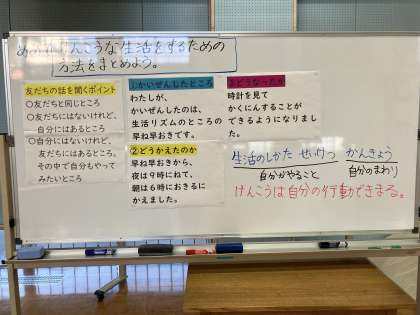 めけんこうな生活をするための
方法をまとめよう。
友だちの話を聞くポイント
○友だちと同じところ
○友だちにはないけれど、
自分にはあるところ
○自分にはないけれど、
友だちにはあるところ。
その中で自分もやって
みたいところ
①かいぜんしたところ
わたしが、
かいぜんしたのは、
生活リズムのところの
早ね早おきです。
②どうかえたのか
早ね早おきから、
夜は9時にねて、
朝は6時におきるに
かえました。
③どうなったか
時計を見て
かくにんすることが
できるようになりまし
た。
生活のしかた せいけつ かんきょう
自分がやること 自分のまわり
けんこうは自分の行動できまる。